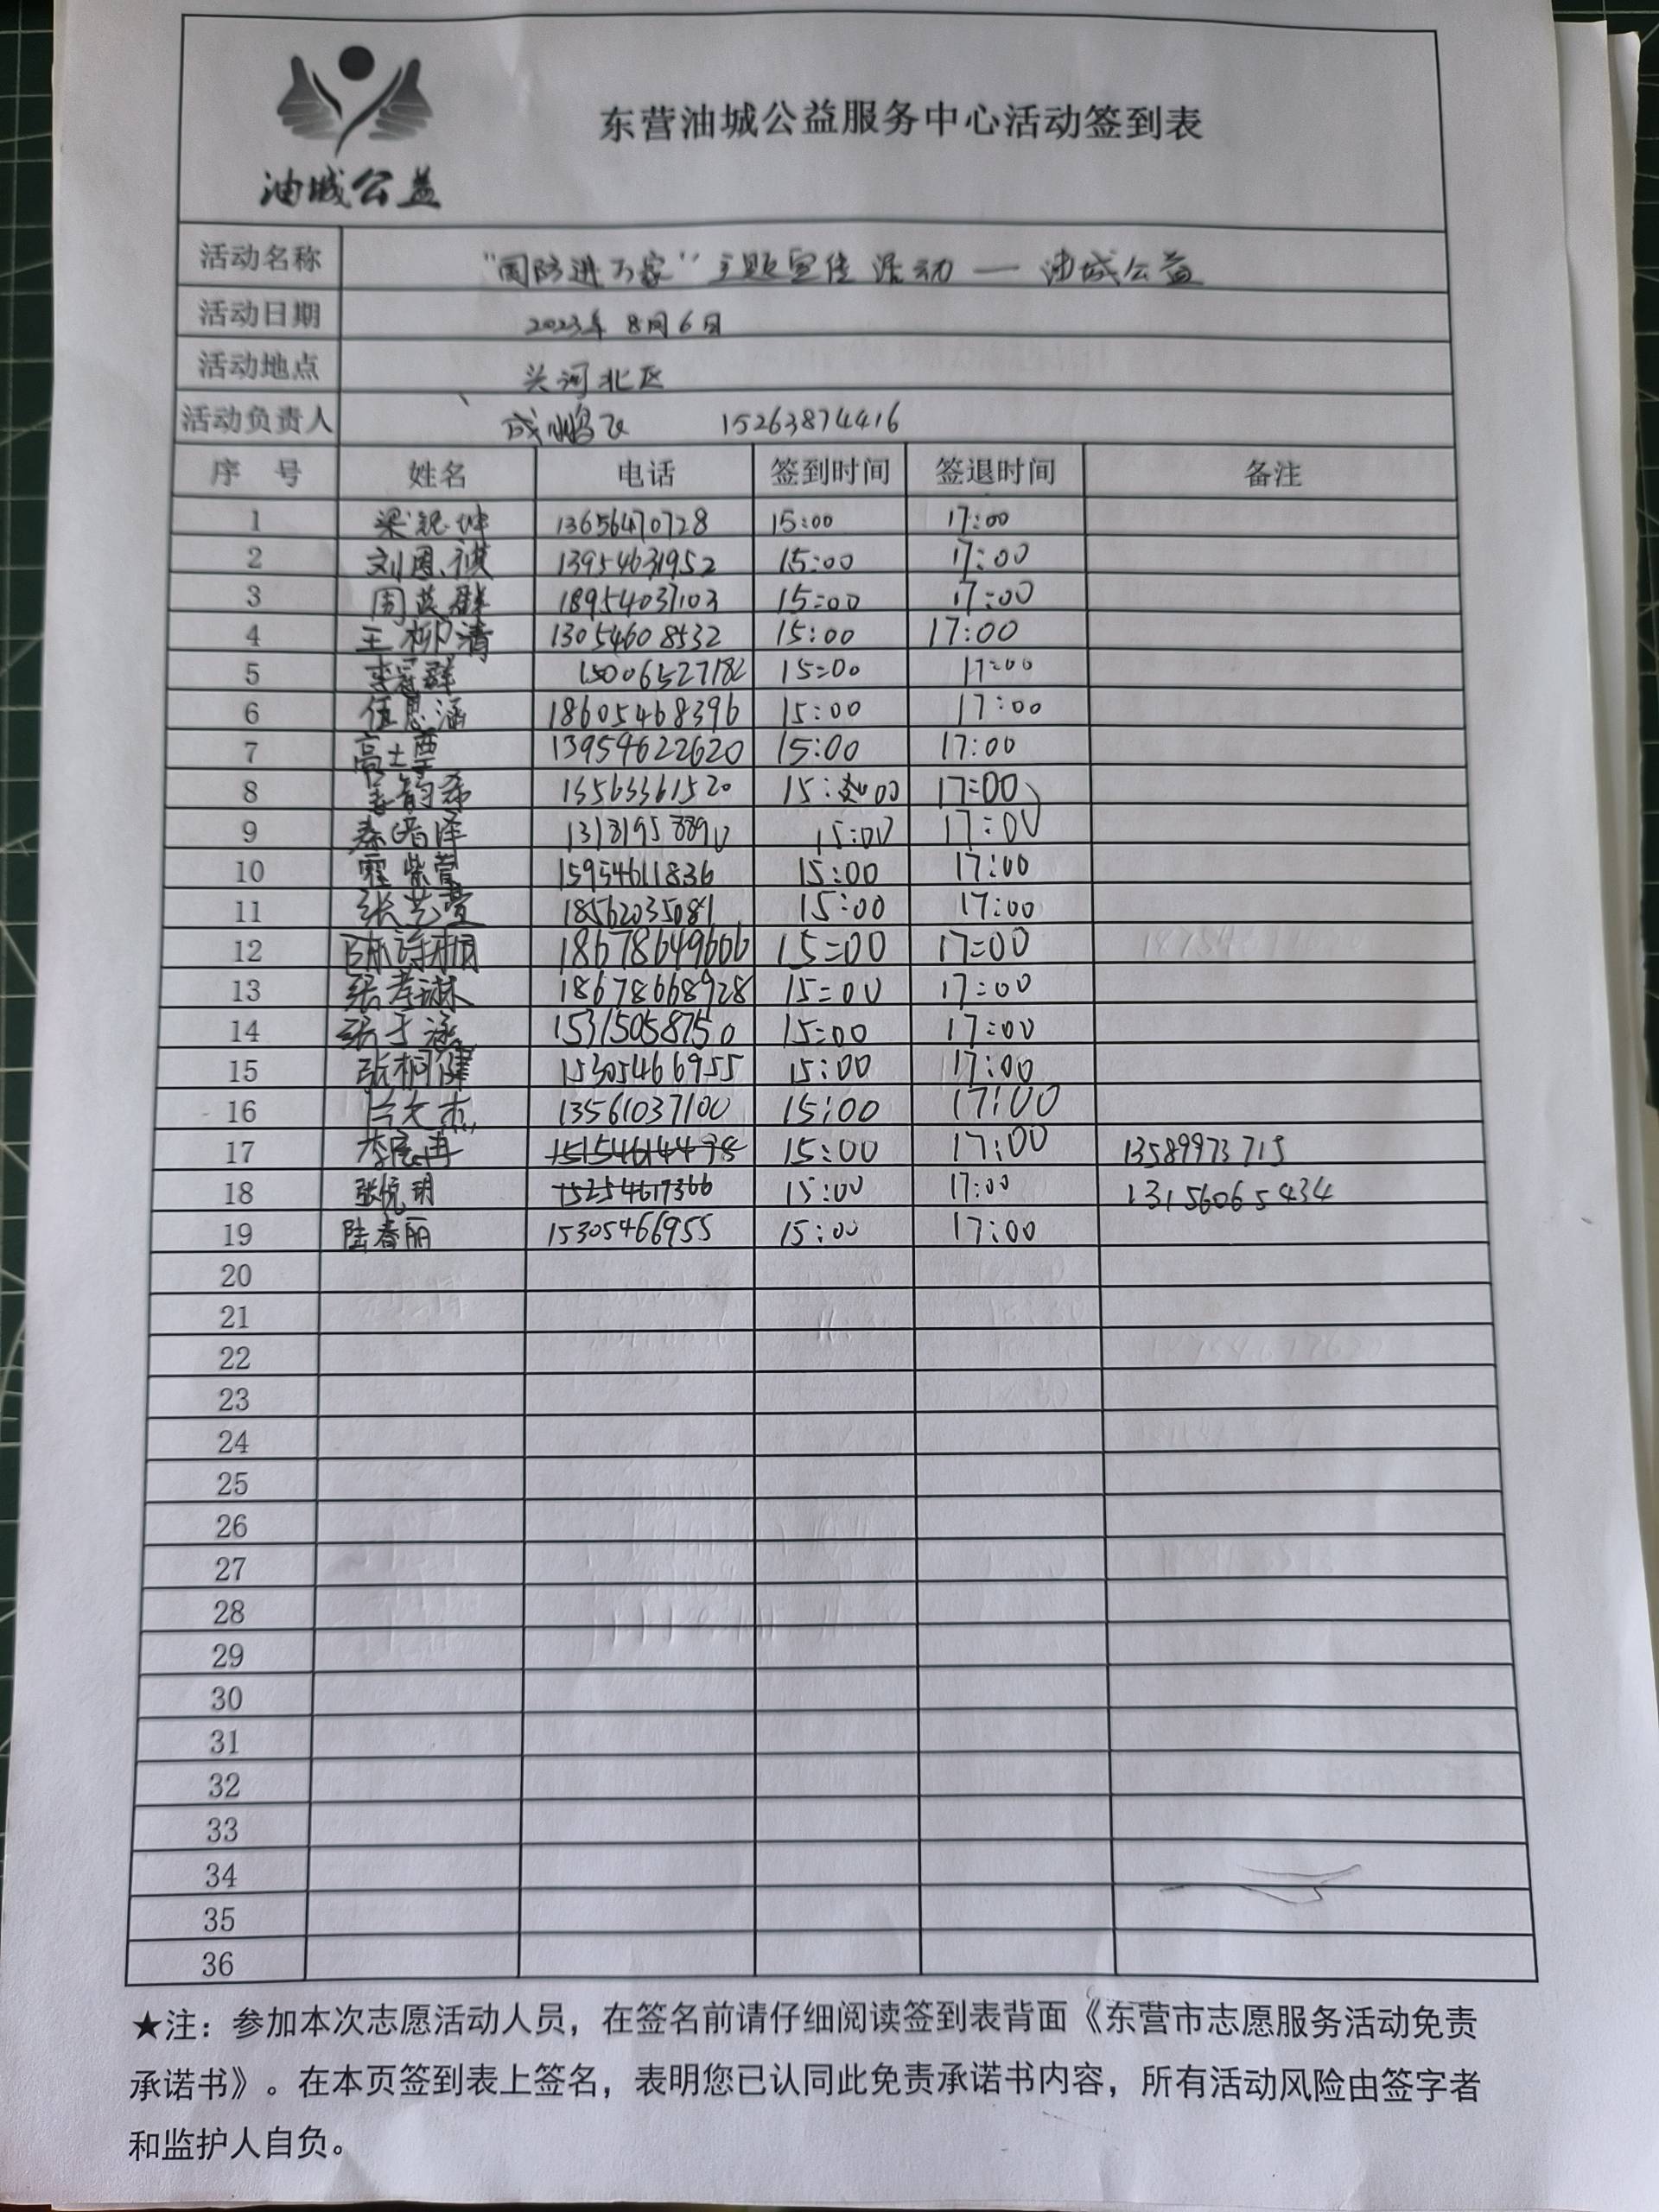 东营油城公益服务中心活动签到表
油城公益
活动名称 "国防进万家"主题宣传活动 — 油城公益
活动日期 2023年8月6日
活动地点 头河北区
活动负责人 成鹏飞 15263874416
序 号 姓名 电话 签到时间 签退时间 备注
1 梁锐坤 13656470728 15:00 17:00
2 刘恩祺 13954631952 15:00 17:00
3 周英群 18954037103 15:00 17:00
4 王柳清 13054608532 15:00 17:00
5 李冠群 15006527182 15:00 17:00
6 伍思涵 18605468396 15:00 17:00
7 高士垔 13959622620 15:00 17:00
8 韵希 13563361520 15:00 17:00
9 秦晧泽 15:00 17:00
10 霍紫萱 15954611836 15:00 17:00
11 张艺萱 18562035081 15:00 17:00
12 陈诗桐 18678649606 15:00 17:00
13 张孝琳 18678668928 15:00 17:00
14 张于涵 15315058750 15:00 17:00
15 张桐健 15305466955 15:00 17:00
16 文杰 13561037100 15:00 17:00
17 李宸冉 15154614498 15:00 17:00 13589973715
18 张悦玥 15254617366 15:00 17:00 13156065434
19 陆春丽 15305466955 15:00 17:00
20
21
22
23
24
25
26
27
28
29
30
31
32
33
34
35
36
★注：参加本次志愿活动人员，在签名前请仔细阅读签到表背面《东营市志愿服务活动免责
承诺书》。在本页签到表上签名，表明您已认同此免责承诺书内容，所有活动风险由签字者
和监护人自负。